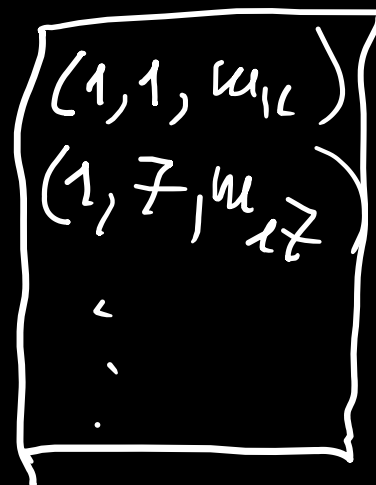 (1, 1, m₁₁)
(1, 7, m₁₇)
.
.
.